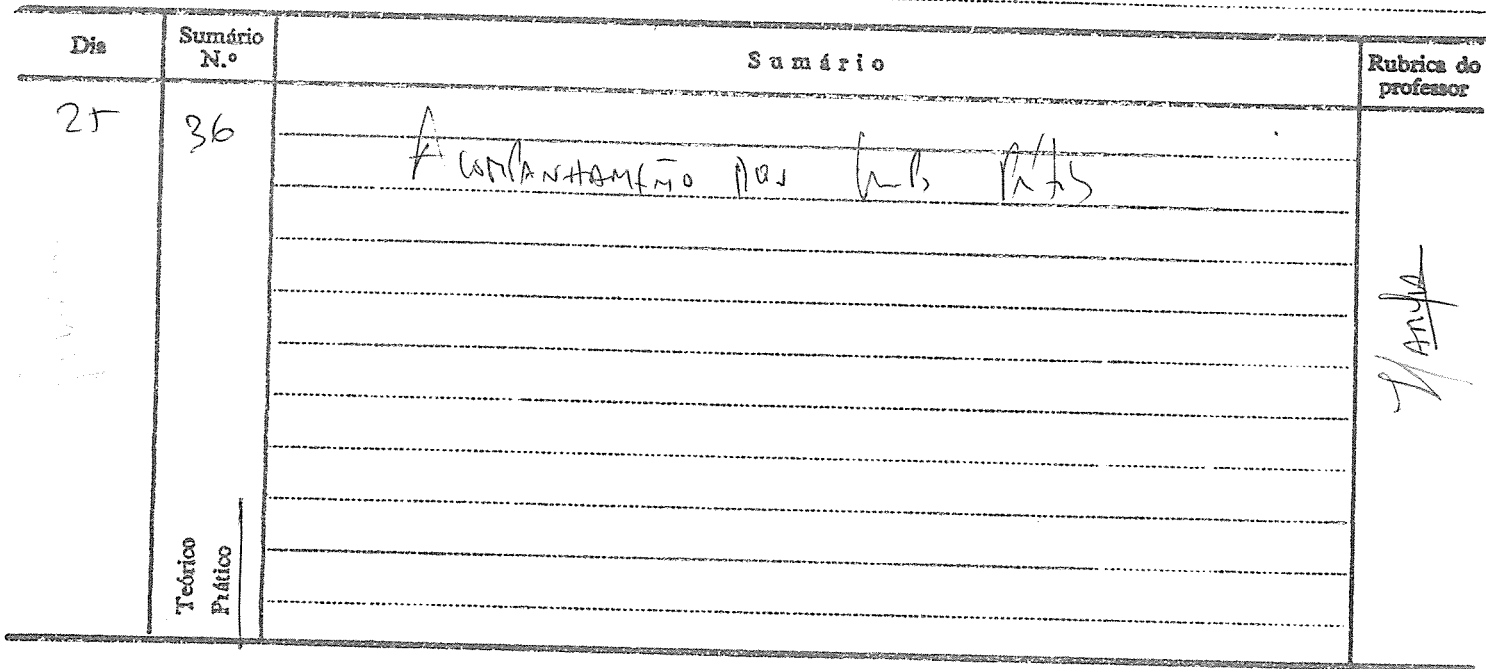 Dia
Sumário N.º
Sumário
Rubrica do professor
25
36
Acompanhamento dos
Teórico
Prático